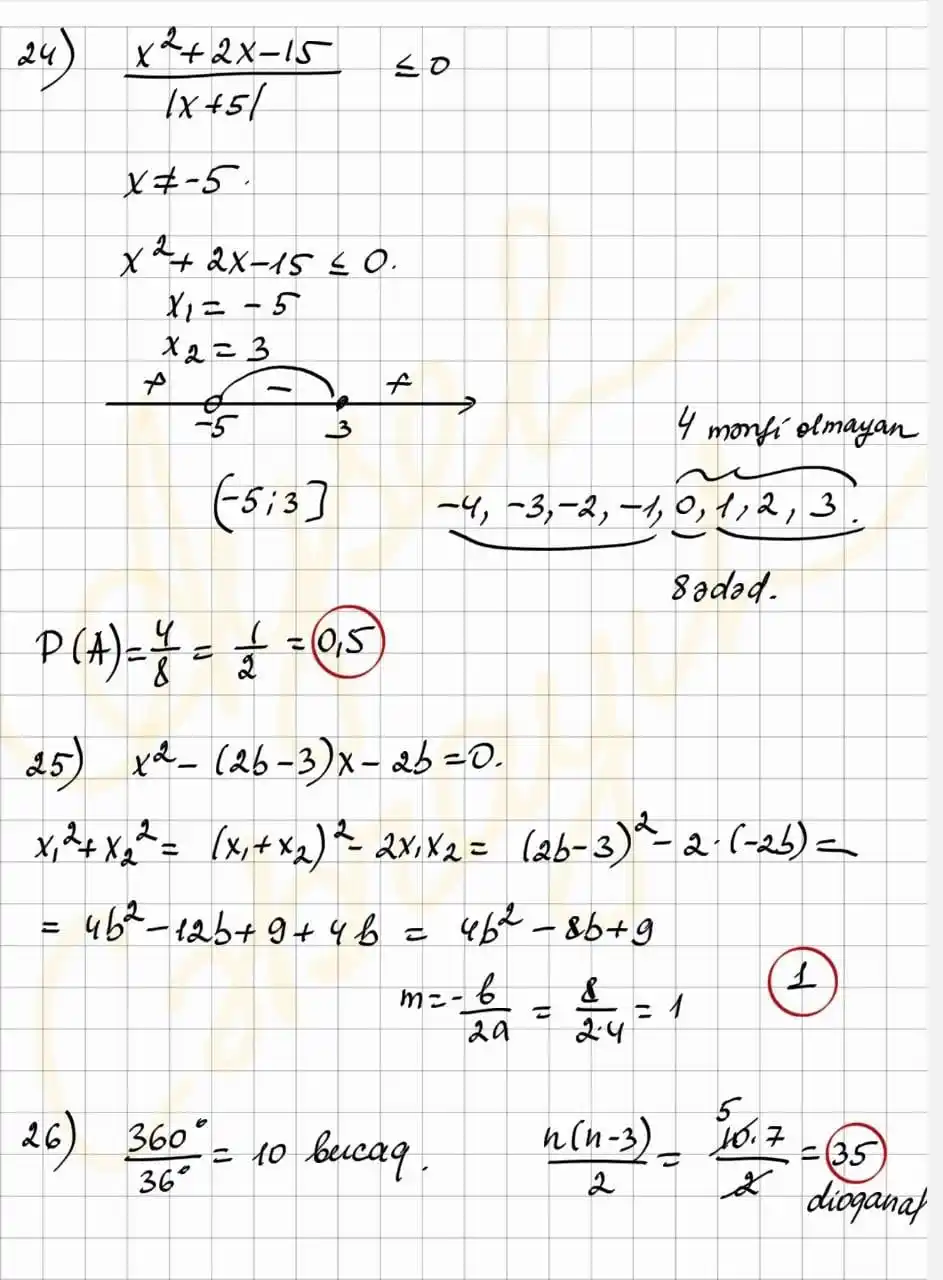 24) x²+2x-15 / |x+5| ≤ 0
x≠-5.
x²+2x-15 ≤ 0.
x₁ = -5
x₂ = 3
+ - +
-5 3
4 mənfi olmayan
(-5;3] -4, -3, -2, -1, 0, 1, 2, 3.
8 ədəd.
P(A)= 4/8 = 1/2 = 0,5
25) x² - (2b-3)x - 2b = 0.
x₁² + x₂² = (x₁+x₂)² - 2x₁x₂ = (2b-3)² - 2·(-2b) =
= 4b² - 12b + 9 + 4b = 4b² - 8b + 9
m = - b/2a = 8/2·4 = 1 1
26) 360°/36° = 10 bucaq. n(n-3)/2 = 10·7/2 = 35
5
dioqanal